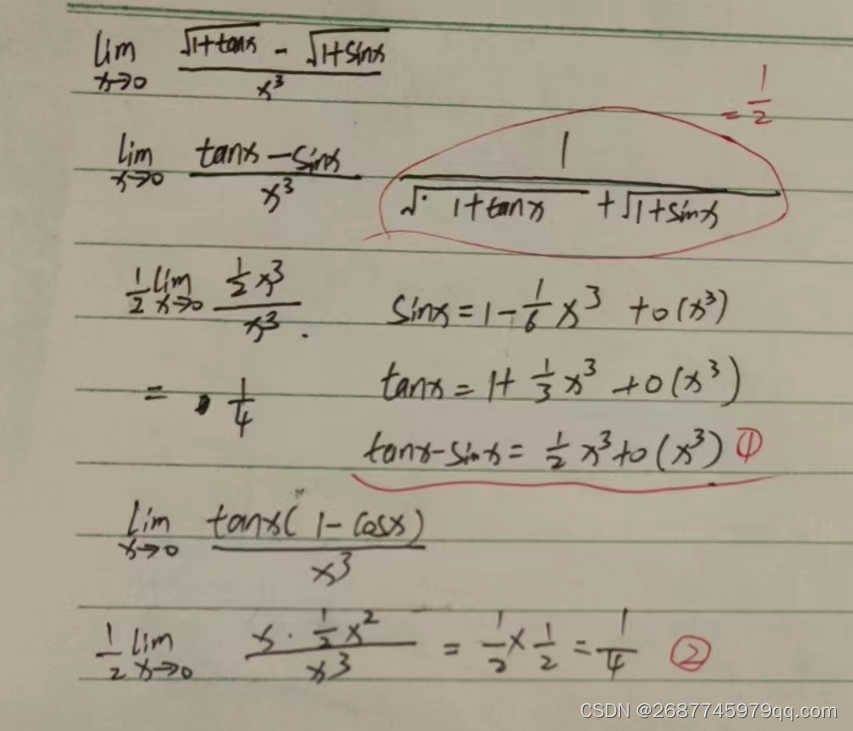 lim x→0 (√(1+tanx) - √(1+sinx)) / x³
= 1/2
lim x→0 (tanx - sinx) / x³ 1 / (√(1+tanx) + √(1+sinx))
1/2 lim x→0 (1/2 x³) / x³ . sinx = 1 - 1/6 x³ + o(x³)
= 1/4 tanx = 1 + 1/3 x³ + o(x³)
tanx - sinx = 1/2 x³ + o(x³) ①
lim x→0 tanx(1 - cosx) / x³
1/2 lim x→0 (x · 1/2 x²) / x³ = 1/2 × 1/2 = 1/4 ②
CSDN @2687745979qq.com